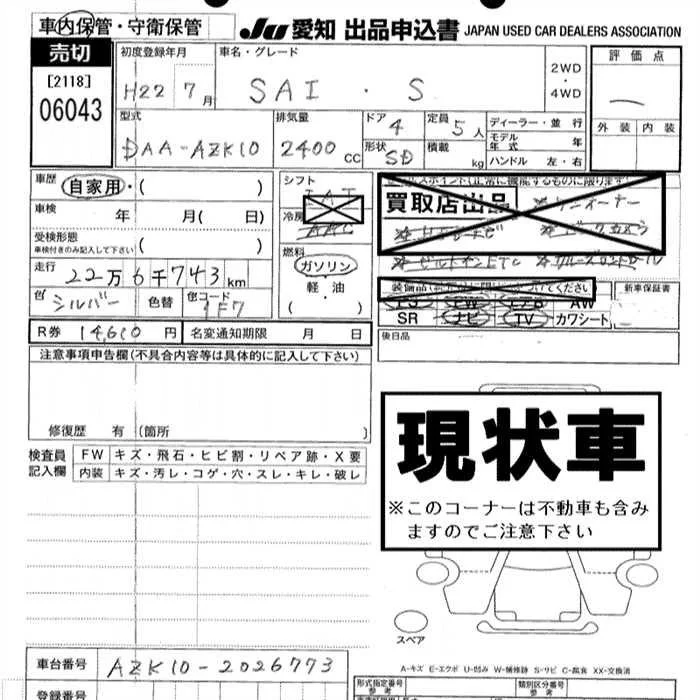 車内保管・守衛保管
JU 愛知 出品申込書 JAPAN USED CAR DEALERS ASSOCIATION
売切
[2118]
06043
初度登録年月
H22 7月
車名・グレード
SAI ・ S
2WD
・
4WD
評価点
外装 内装
型式
DAA-AZK10
排気量
2400 CC
ドア 4
形状 SD
定員 5人
積載 kg
ディーラー・並行
モデル年式 年
ハンドル 左・右
車歴 自家用・( )
車検 年 月( 日)
受検形態
車検付きのみ記入して下さい ( )
走行 22万6千743km
色 シルバー 色替 色コード 1F7
シフト
冷房
燃料
ガソリン
軽・油
( )
買取店出品
新車保証書
SR ナビ TV カワシート
後日品
R券 14,610円 名変通知期限 月 日
注意事項申告欄(不具合内容等は具体的に記入して下さい)
修復歴 有 (箇所 )
検査員記入欄
FW キズ・飛石・ヒビ割・リペア跡・X要
内装 キズ・汚レ・コゲ・穴・スレ・キレ・破レ
現状車
※このコーナーは不動車も含み
ますのでご注意下さい
スペア
A-キズ E-エクボ U-凹み W-補修跡 S-サビ C-腐食 XX-交換済
車台番号 AZK10-2026773
登録番号
型式指定番号
参考
類別区分番号
参考